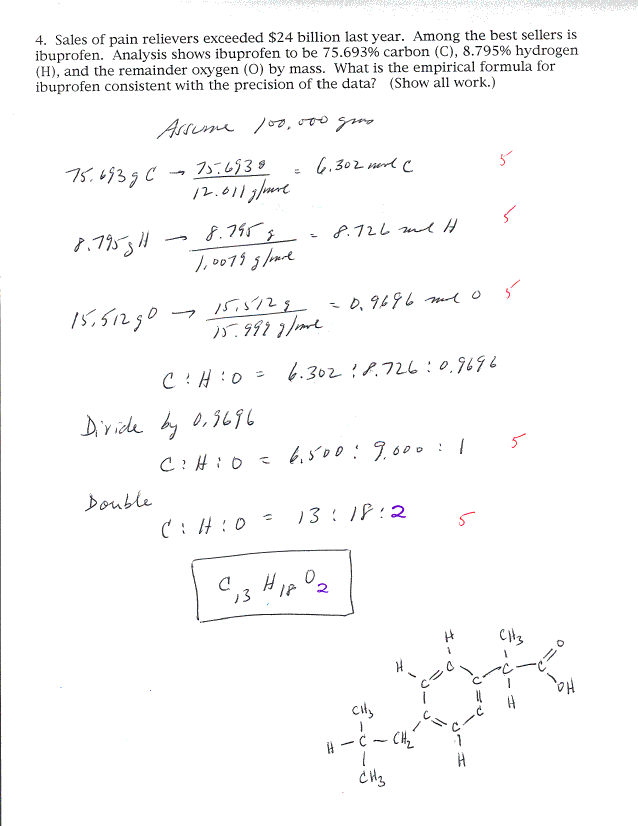 4. Sales of pain relievers exceeded $24 billion last year. Among the best sellers is
ibuprofen. Analysis shows ibuprofen to be 75.693% carbon (C), 8.795% hydrogen
(H), and the remainder oxygen (O) by mass. What is the empirical formula for
ibuprofen consistent with the precision of the data? (Show all work.)
Assume 100.000 gms
75.693 g C → 75.693 g / 12.011 g/mole = 6.302 mol C 5
8.795 g H → 8.795 g / 1.0079 g/mole = 8.726 mol H 5
15.512 g O → 15.512 g / 15.999 g/mole = 0.9696 mol O 5
C : H : O = 6.302 : 8.726 : 0.9696
Divide by 0.9696
C : H : O = 6.500 : 9.000 : 1 5
Double
C : H : O = 13 : 18 : 2 5
C13 H18 O2
H CH3 O
H C C C
C C OH
C C H
CH3 C C
H - C - CH2 H
CH3